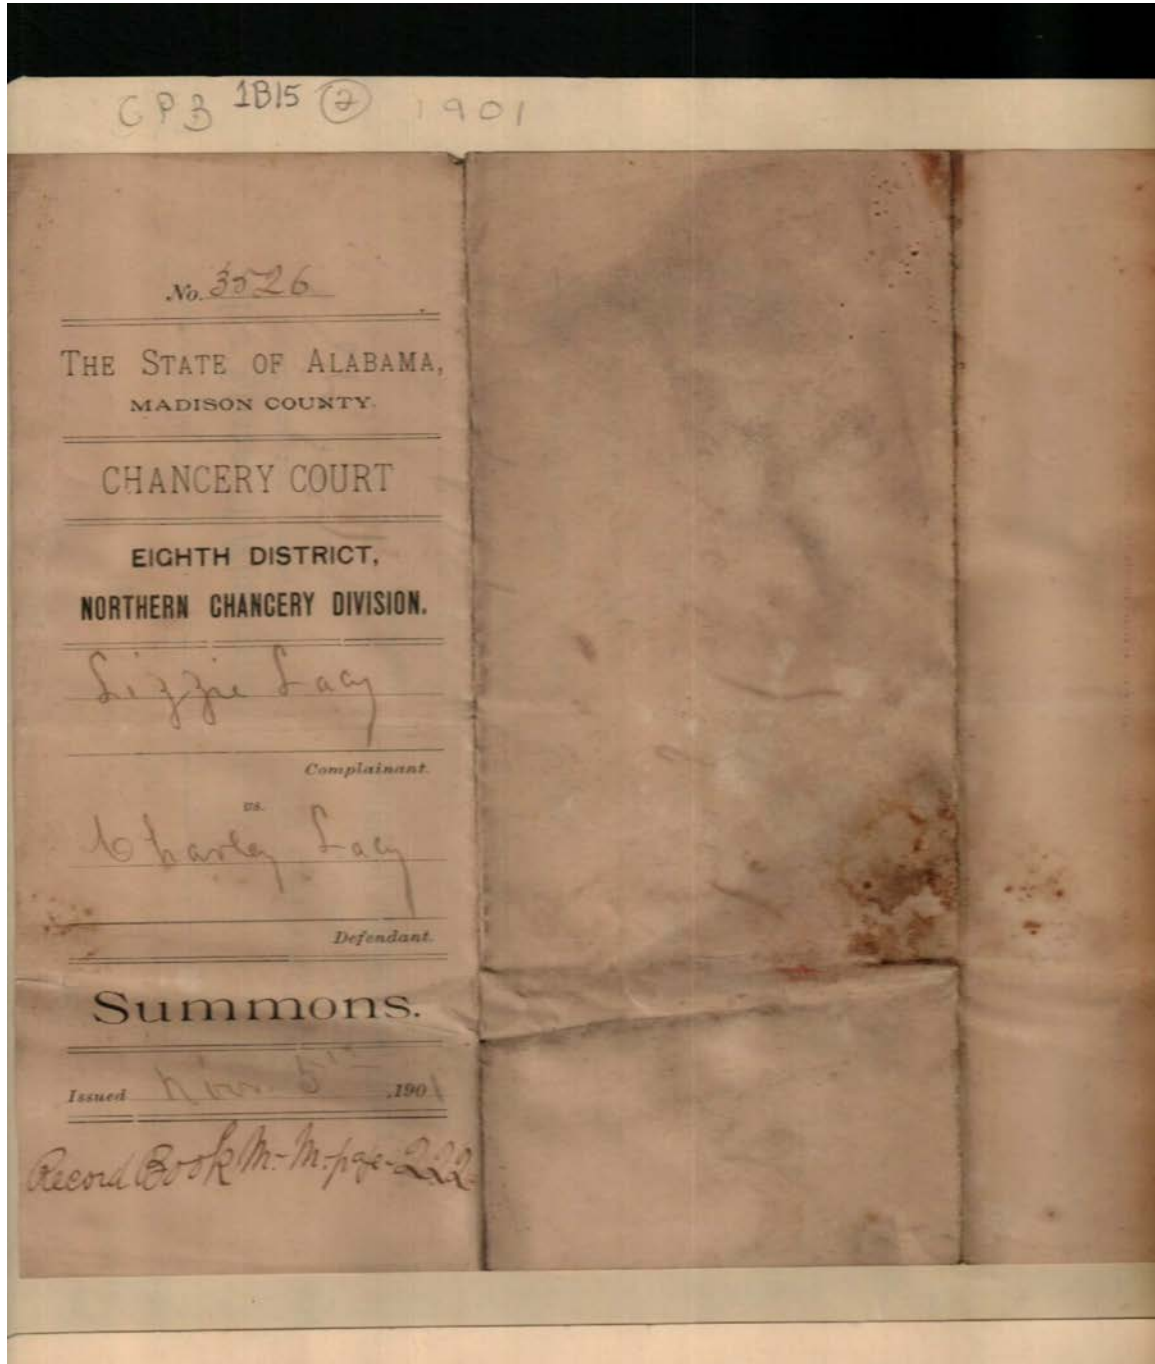 CPB 1B15 2 1901
No. 3526
THE STATE OF ALABAMA,
MADISON COUNTY.
CHANCERY COURT
EIGHTH DISTRICT,
NORTHERN CHANCERY DIVISION.
Lizzie Lacy
Complainant.
vs.
Charley Lacy
Defendant.
Summons.
Issued Nov. 5th, 1901
Record Book M.-M. page-222